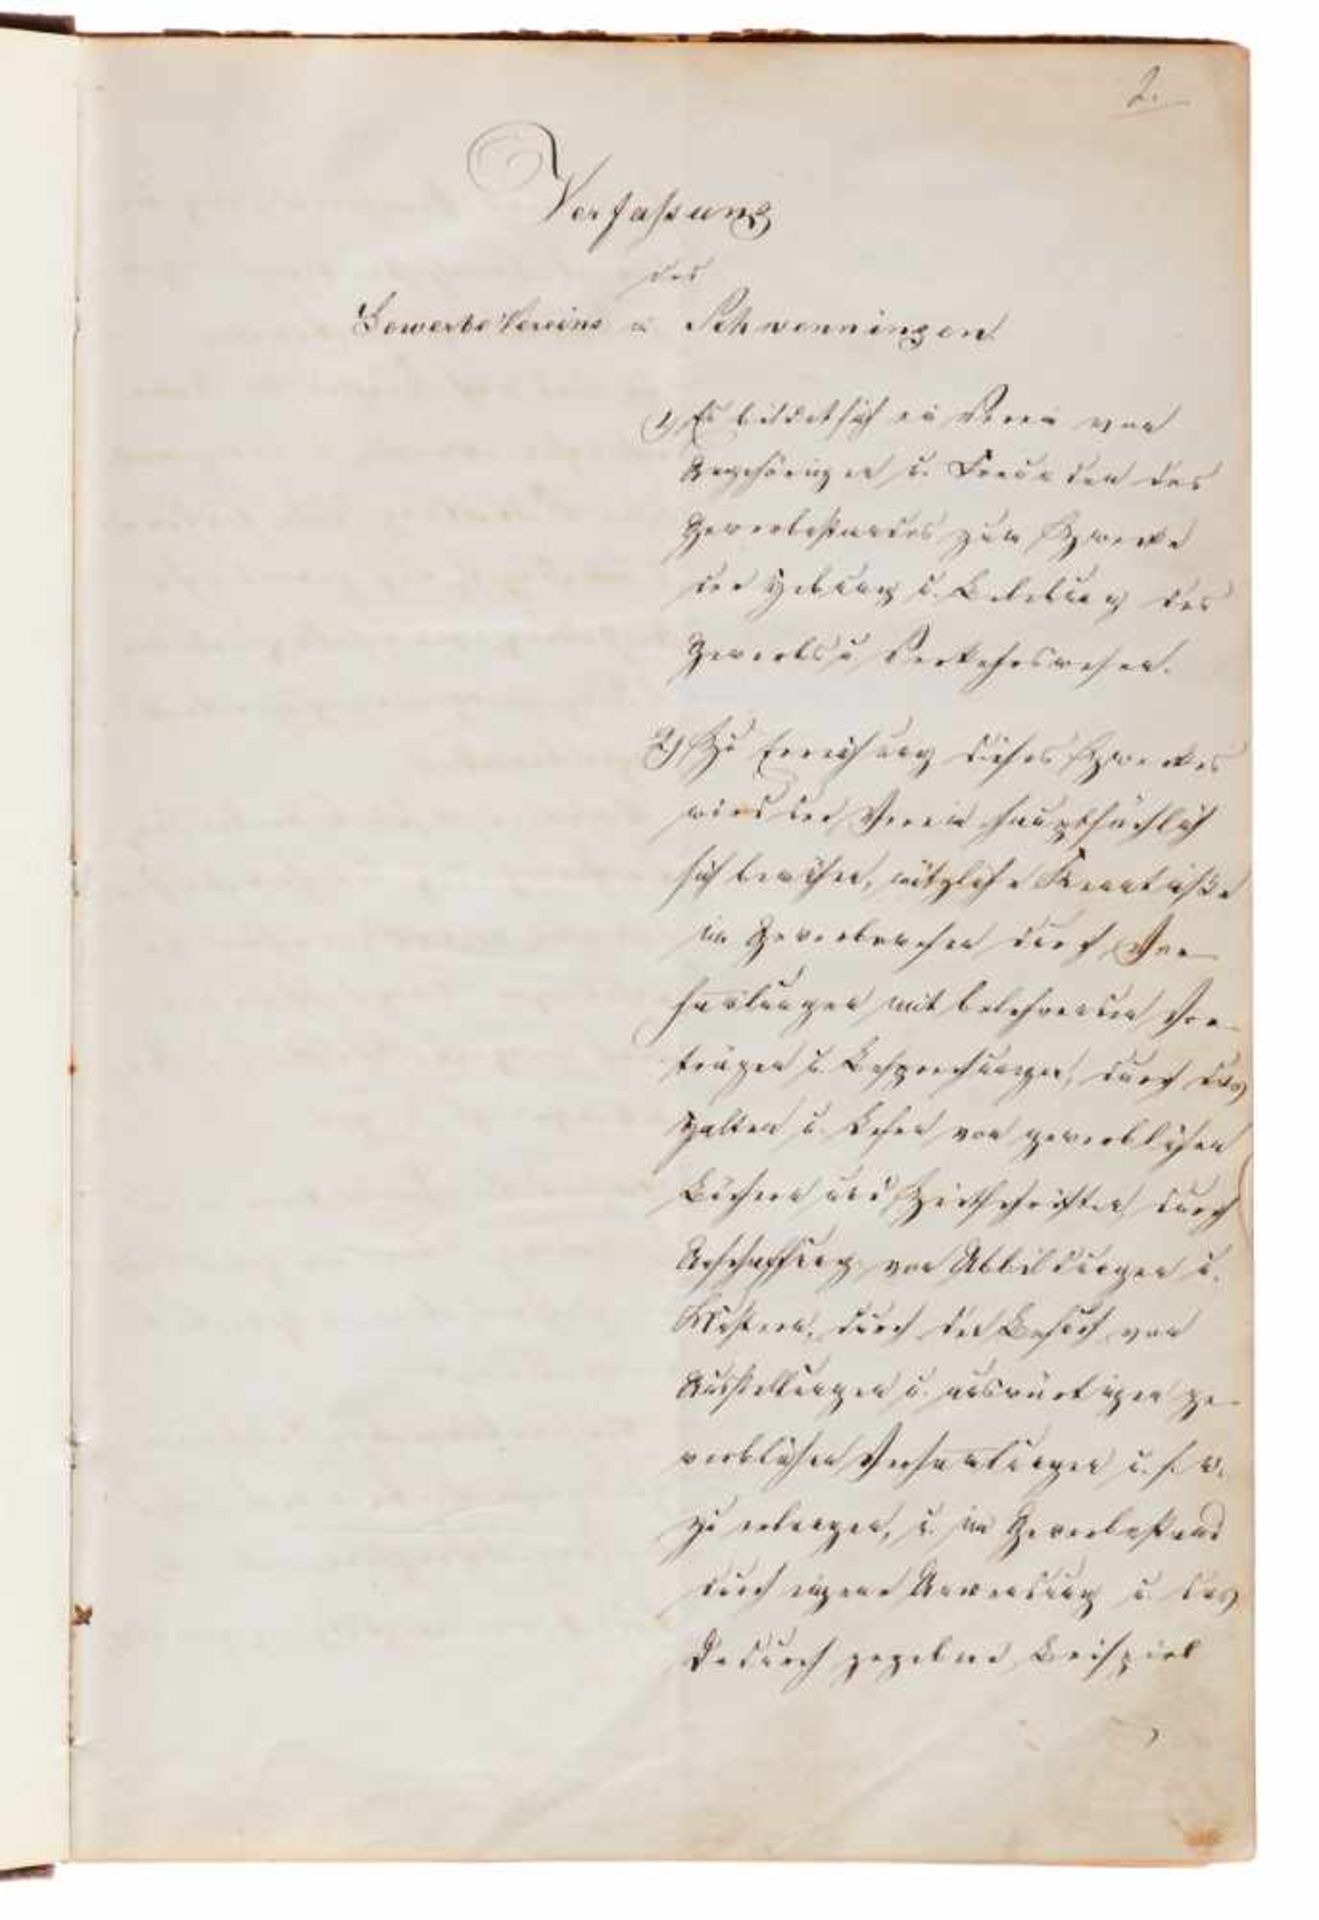 2.
Verfaßung
des
Gewerbe Vereins in Schwenningen
1) Es bildet sich ein Verein von
Angehörigen u. Freunden des
Gewerbestandes zum Zwecke
der Hebung u. Belebung des
Gewerbs u. Verkehrswesen.
2) Zu Erreichung dieses Zweckes
wird der Verein hauptsächlich
sich bemühen, nützliche Kenntniße
im Gewerbewesen durch Ver-
samlungen mit belehrenden Vor-
trägen u. Besprechungen, durch das
Halten u. Lesen von gewerblichen
Büchern und Zeitschriften, durch
Anschaffung von Abbildungen u.
Mustern, durch den Besuch von
Ausstellungen u. auswärtigen ge-
werblichen Versamlungen u. s. w.
zu erlangen, u. im Gewerbestand
durch eigene Anwendung u. das
Dadurch gegebene Beispiel